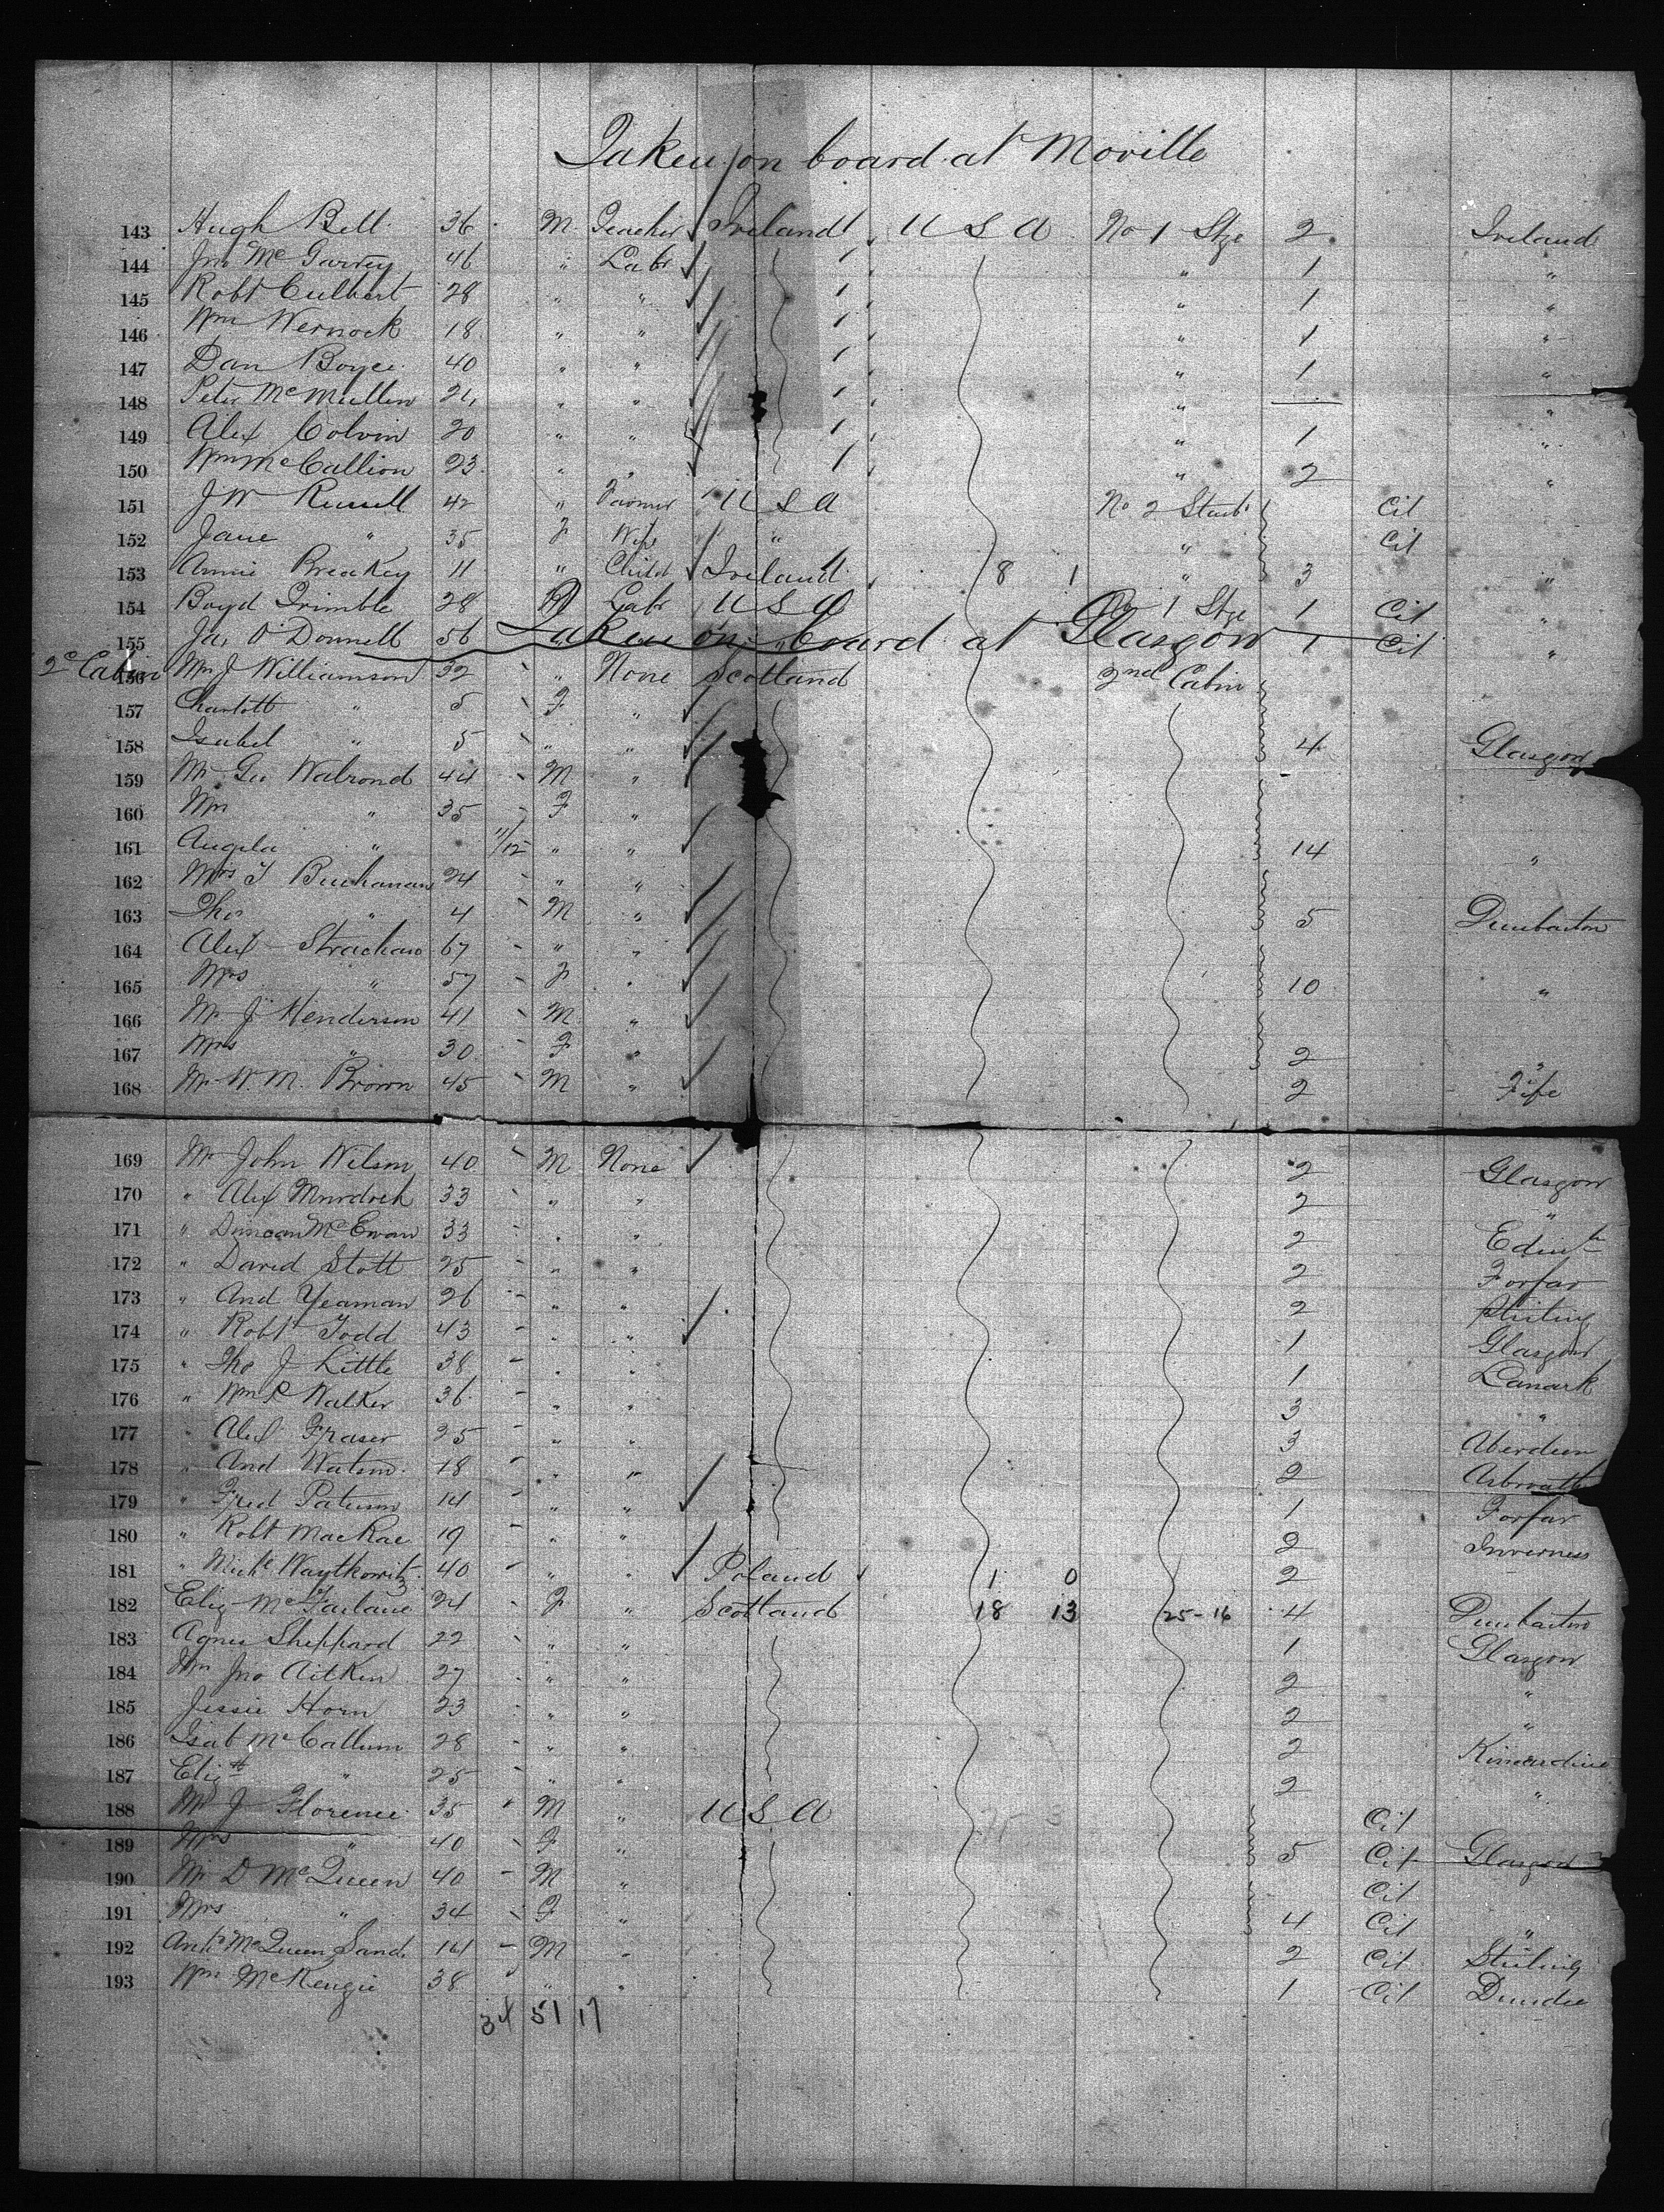 Taken on board at Moville
143 Hugh Bell 36 M Teacher Ireland U S A No 1 Stge 2 Ireland
144 Jno McGarvey 46 " Labr " 1 "
145 Robt Culbert 28 " " " 1 "
146 Wm Wernock 18 " " " 1 "
147 Dan Boyce 40 " " " 1 "
148 Peter McMullen 24 " " " "
149 Alex Colvin 20 " " " 1 "
150 Wm McCallion 23 " " " 2 "
151 J W Russell 42 " Farmer U S A No 2 Cit
152 Jane " 35 F Wife " " Cit
153 Annie Breakey 11 " Child Ireland 8 1 " 3 "
154 Boyd Trimble 28 M Labr U S A No 1 Stge 1 Cit "
155 Jas O'Donnell 56 1 Cit "
Taken on board at Glasgow
2d Cabin 156 Mrs J Williamson 32 " None Scotland 2nd Cabin
157 Charlott " 5 F "
158 Isabel " 5 " " 4 Glasgow
159 Mr Geo Walrond 44 M "
160 Mrs " 35 F "
161 Angela " 11/12 " " 14 "
162 Mrs T Buchanan 24 " "
163 Tho " 4 M " 5 Dumbarton
164 Alex Strachan 67 " "
165 Mrs " 57 F " 10 "
166 Mr J Henderson 41 M "
167 Mrs " 30 F " 2 "
168 Mr W. M. Brown 45 M " 2 Fife
169 Mr John Wilson 40 M None 2 Glasgow
170 " Alex Murdoch 33 " " 2 "
171 " Duncan McEwan 33 " " 2 Edinh
172 " David Stott 25 " " 2 Forfar
173 " And Yeaman 26 " " 2 Stirling
174 " Robt Todd 43 " " 1 Glasgow
175 " Tho J Little 38 " " 1 Lanark
176 " Wm R Walker 36 " " 3 "
177 " Alex Fraser 25 " " 3 Aberdeen
178 " And Watson 18 " " 2 Arbroath
179 " Fred Paterson 14 " " 1 Forfar
180 " Robt MacRae 19 " " 2 Inverness
181 " Waytkowitz 40 " " Poland 1 0 2
182 Eliz McFarlane 24 F " Scotland 18 13 25-16 4 Dumbarton
183 Agnes Sheppard 22 " " 1 Glasgow
184 Mrs Jno Aitken 27 " " 2 "
185 Jessie Horn 23 " " 2 "
186 Isab McCallum 28 " " 2 Kincardine
187 Elizth " 25 " " 2 "
188 Mr J Florence 35 M " U S A Cit
189 Mrs " 40 F " 5 Cit Glasgow
190 Mr D McQueen 40 M " Cit
191 Mrs " 34 F " 4 Cit "
192 McQueen Sand 14 M " 2 Cit Stirling
193 Wm McKenzie 38 " " 1 Cit Dundee
34 51 17